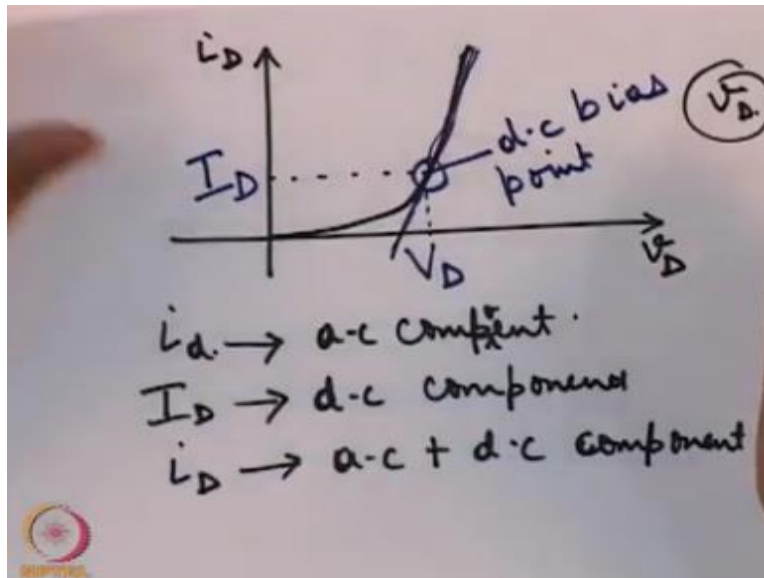 i_D
I_D
d.c bias
point
v_D
V_D
v_D
i_d. → a-c compent.
I_D → d-c component
i_D → a-c + d.c component
NPTEL